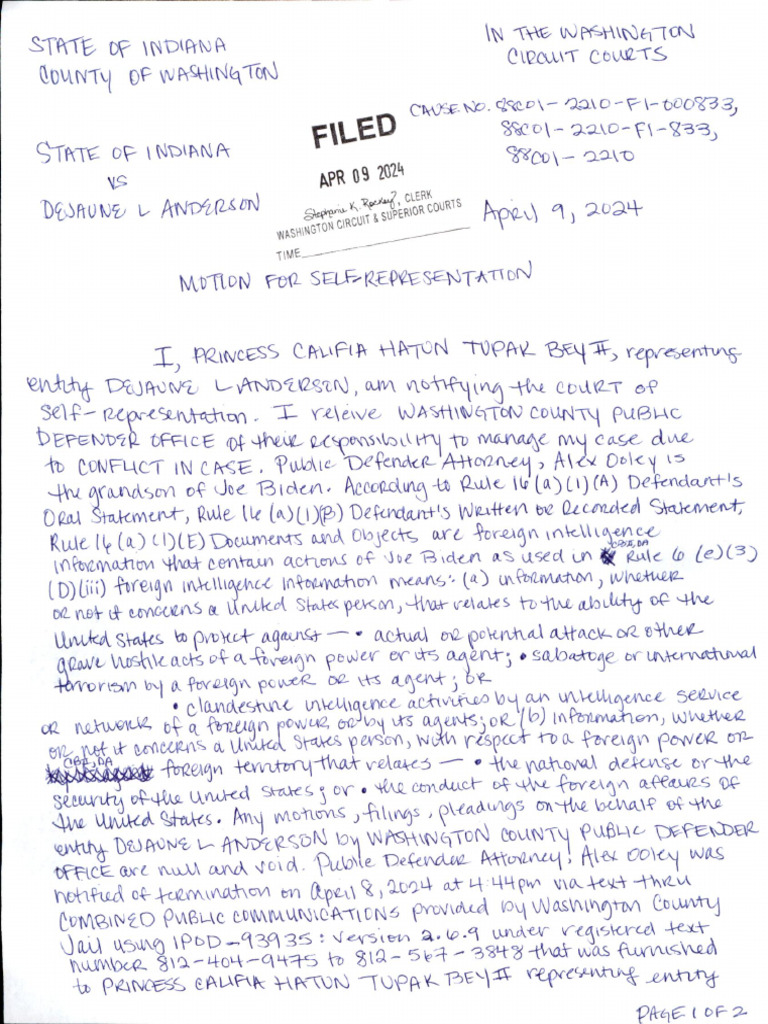 STATE OF INDIANA
COUNTY OF WASHINGTON
IN THE WASHINGTON
CIRCUIT COURTS
CAUSE NO. 88C01-2210-F1-000833,
88C01-2210-F1-833,
88C01-2210
STATE OF INDIANA
VS
DEJAUNE L ANDERSON
FILED
APR 09 2024
Stephanie K. Rockey, CLERK
WASHINGTON CIRCUIT & SUPERIOR COURTS
TIME
April 9, 2024
MOTION FOR SELF-REPRESENTATION
I, PRINCESS CALIFIA HATUN TUPAK BEY II, representing
entity DEJAUNE L ANDERSEN, am notifying the COURT of
self-representation. I releive WASHINGTON COUNTY PUBLIC
DEFENDER OFFICE of their responsibility to manage my case due
to CONFLICT IN CASE. Public Defender Attorney, Alex Ooley is
the grandson of Joe Biden. According to Rule 16 (a)(1)(A) Defendant's
Oral Statement, Rule 16 (a)(1)(B) Defendant's Written or Recorded Statement,
Rule 16 (a)(1)(E) Documents and Objects are foreign intelligence
information that contain actions of Joe Biden as used in Rule 6 (e)(3)
(D)(iii) foreign intelligence information means: (a) information, whether
or not it concerns a United States person, that relates to the ability of the
United States to protect against — • actual or potential attack or other
grave hostile acts of a foreign power or its agent; • sabatoge or international
terrorism by a foreign power or its agent; or
• clandestine intelligence activities by an intelligence service
or network of a foreign power or by its agents; or (b) information, whether
or not it concerns a United States person, with respect to a foreign power or
foreign territory that relates — • the national defense or the
security of the United States; or • the conduct of the foreign affairs of
the United States. Any motions, filings, pleadings on the behalf of the
entity DEJAUNE L ANDERSON by WASHINGTON COUNTY PUBLIC DEFENDER
OFFICE are null and void. Public Defender Attorney, Alex Ooley was
notified of termination on April 8, 2024 at 4:44pm via text thru
COMBINED PUBLIC COMMUNICATIONS provided by Washington County
Jail using IPOD-93935: version 2.6.9 under registered text
number 812-404-9475 to 812-567-3848 that was furnished
to PRINCESS CALIFIA HATUN TUPAK BEY II representing entity
PAGE 1 OF 2